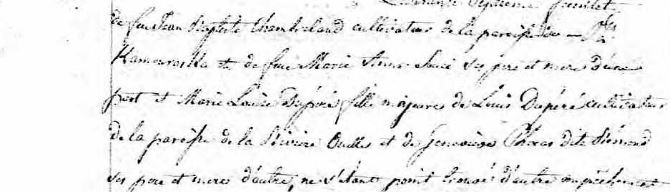 de feu Jean Baptiste Chamberland cultivateur de la paroisse de
Kamouraska et de feue Marie Anne Saucier ses père et mere d'une
part et Marie Louise Dupéré, fille majeure de Louis Dupéré cultivateur
de la paroisse de la Rivière Ouelles et de Genevieve Phocas dite Raimond
ses pere et mere d'autre, ne s'étant point trouvé d'autre empêchement